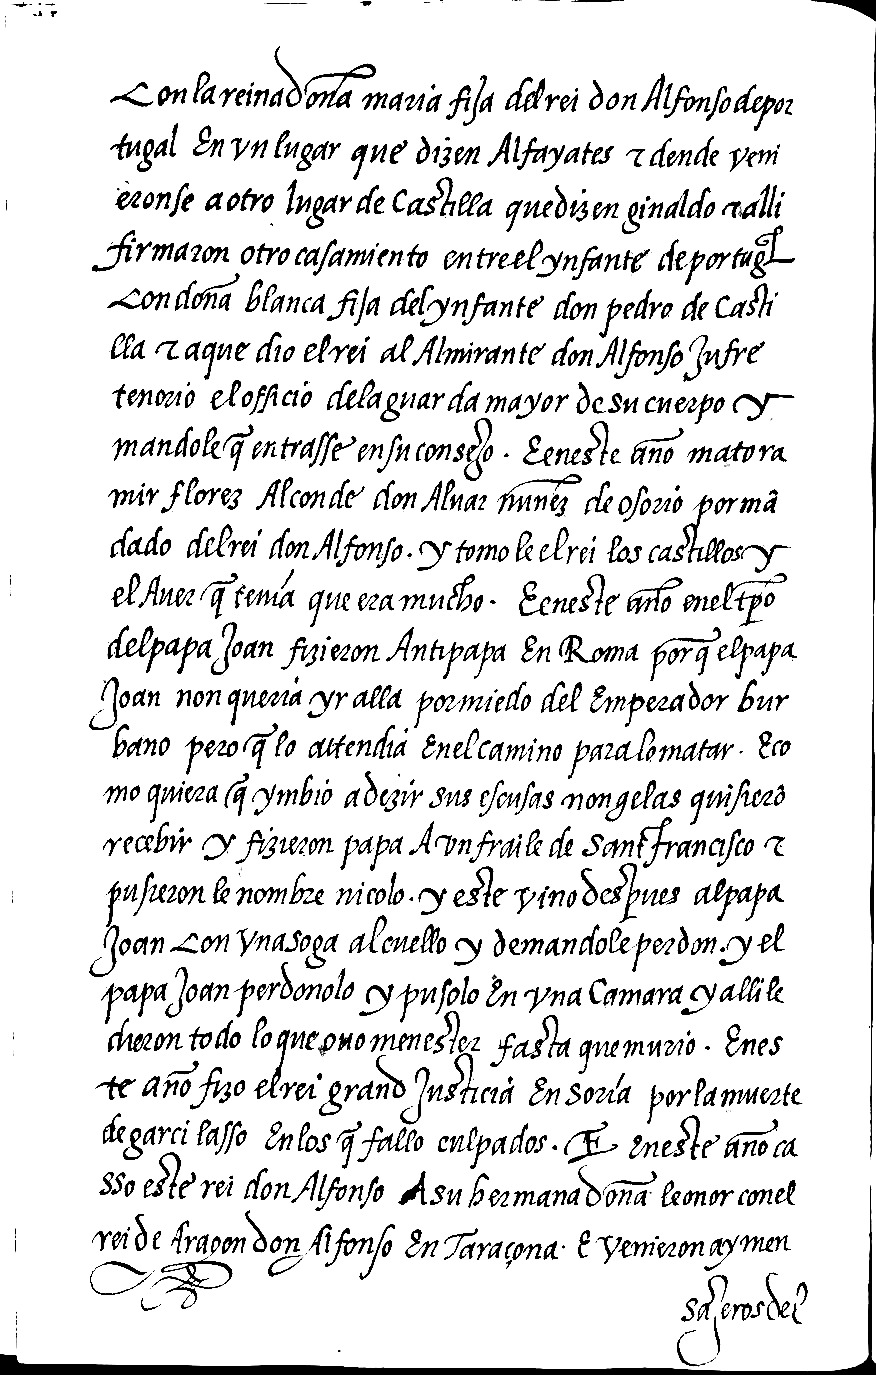 Con la reina doña maria fija del rei don Alfonso de por
tugal En vn lugar que dizen Alfayates τ dende veni
eronse a otro lugar de Castilla que dizen ginaldo τ alli
firmaron otro casamiento entre el ynfante de portugl
Con doña blanca fija del ynfante don pedro de Casti
lla τ aque dio el rei al Almirante don Alfonso Jufre
tenorio el officio de la guarda mayor de su cuerpo y
mandole q̃ entrasse en su consejo. E eneste año mato ra
mir florez Al conde don Aluar nunẽz de osorio por mã
dado del rei don Alfonso. y tomo le el rei los castillos y
el Auer q̃ tenía que era mucho. E eneste año enel tp̃o
del papa Joan fizieron Antipapa En Roma porq̃ el papa
Joan non queria yr alla por miedo del Emperador bur
bano pero q̃ lo attendia Enel camino para lo matar. E co
mo quiera q̃ ymbio a dezir sus escusas non gelas quisierõ
recebir y fizieron papa A vn fraile de Sant francisco τ
pusieron le nombre nicolo. y este vino despues al papa
Joan Con vna soga al cuello y demandole perdon. y el
papa Joan perdonolo y pusolo En vna Camara y alli le
dieron todo lo que ouo menester fasta que murio. Enes
te año fizo el rei grand Justicia En Soría por la muerte
de garci lasso En los q̃ fallo culpados. E eneste año ca
sso este rei don Alfonso A su hermana doña leonor con el
rei de Aragon don Alfonso En Taraçona. E venieron ay men
sajeros del